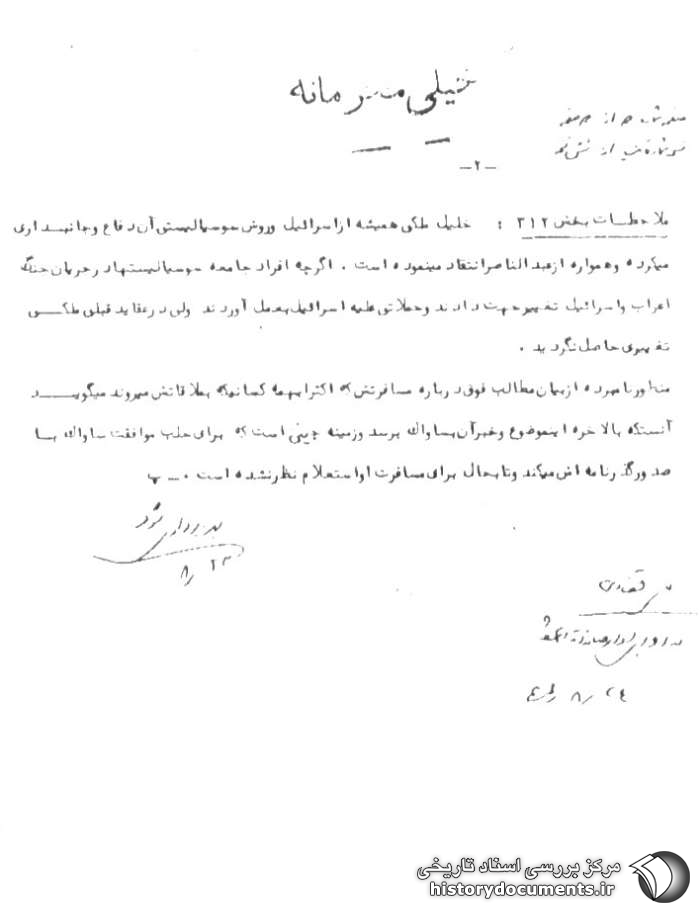 خیلی محرمانه
-۲-
ملاحظات بخش ۳۱۲ : خلیل ملکی همیشه از اسرائیل و روش سوسیالیستی آن دفاع و جانبداری
میکرده و همواره از عبدالناصر انتقاد مینموده است . اگرچه افراد جامعه سوسیالیستها در جریان جنگ
اعراب و اسرائیل تغییر جهت دادند و حملاتی علیه اسرائیل بعمل آوردند ولی در عقاید قبلی ملکی
تغییری حاصل نگردید .
منظور نامبرده از بیان مطالب فوق درباره مسافرتش که اکثرا بهمه کسانیکه بملاقاتش میروند میگوید
آنستکه بالاخره اینموضوع و خبر آن بساواک برسد و زمینه چینی است که برای جلب موافقت ساواک با
صدور گذرنامه اش میکند و تا بحال برای مسافرت او استعلام نظر نشده است . ــ پ
بهره برداری شود
۸/۲۳
۸/۲۴
مرکز بررسی اسناد تاریخی
historydocuments.ir